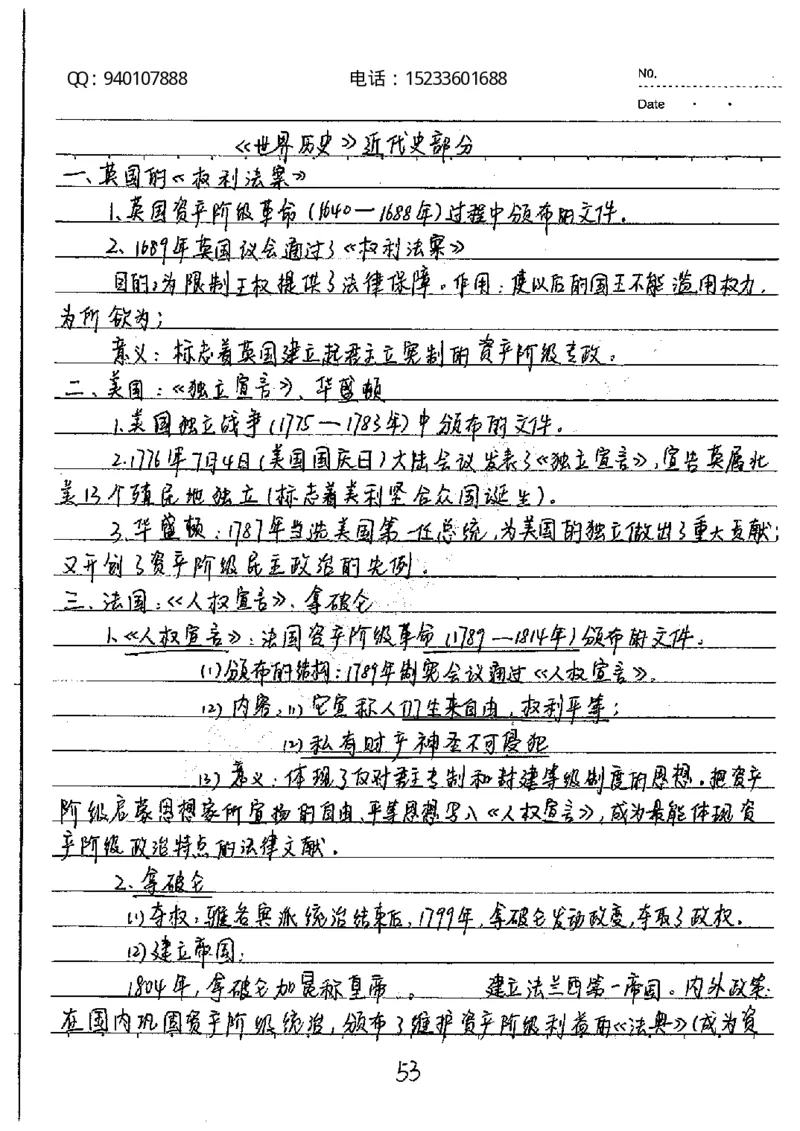 QQ：940107888 电话：15233601688 NO.
Date
《世界历史》近代史部分
一、英国的《权利法案》
1、英国资产阶级革命（1640—1688年）过程中颁布的文件。
2、1689年英国议会通过了《权利法案》
目的：为限制王权提供了法律保障。作用：使以后的国王不能滥用权力，
为所欲为；
意义：标志着英国建立起君主立宪制的资产阶级专政。
二、美国：《独立宣言》、华盛顿
1.美国独立战争（1775—1783年）中颁布的文件。
2.1776年7月4日（美国国庆日）大陆会议发表了《独立宣言》，宣告英属北
美13个殖民地独立（标志着美利坚合众国诞生）。
3.华盛顿：1787年当选美国第一任总统，为美国的独立做出了重大贡献；
又开创了资产阶级民主政治的先例。
三、法国：《人权宣言》、拿破仑
1、《人权宣言》：法国资产阶级革命（1789—1814年）颁布的文件。
（1）颁布的结构：1789年制宪会议通过《人权宣言》。
（2）内容：（1）它宣称人们生来自由，权利平等；
（2）私有财产神圣不可侵犯
（3）意义：体现了反对君主专制和封建等级制度的思想。把资产
阶级启蒙思想家所宣扬的自由、平等思想写入《人权宣言》，成为最能体现资
产阶级政治特点的法律文献。
2、拿破仑
（1）夺权：雅各宾派统治结束后，1799年，拿破仑发动政变，夺取了政权。
（2）建立帝国：
1804年，拿破仑加冕称皇帝。 建立法兰西第一帝国。内外政策：
在国内巩固资产阶级统治，颁布了维护资产阶级利益的《法典》（成为资
53